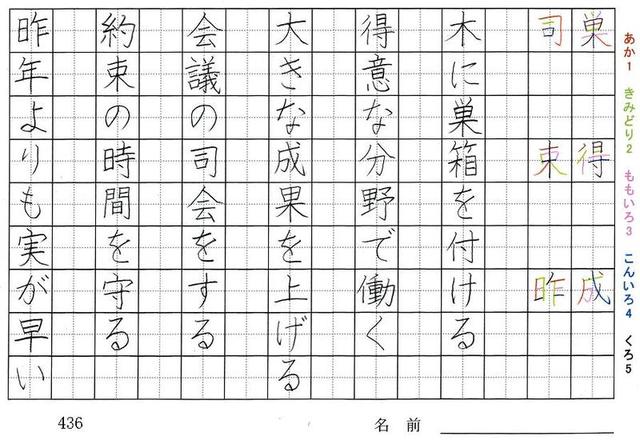 あか1 きみどり2 ももいろ3 こんいろ4 くろ5
巣 得 成
司 束 昨
木に巣箱を付ける
得意な分野で働く
大きな成果を上げる
会議の司会をする
約束の時間を守る
昨年よりも実が早い
436
名前